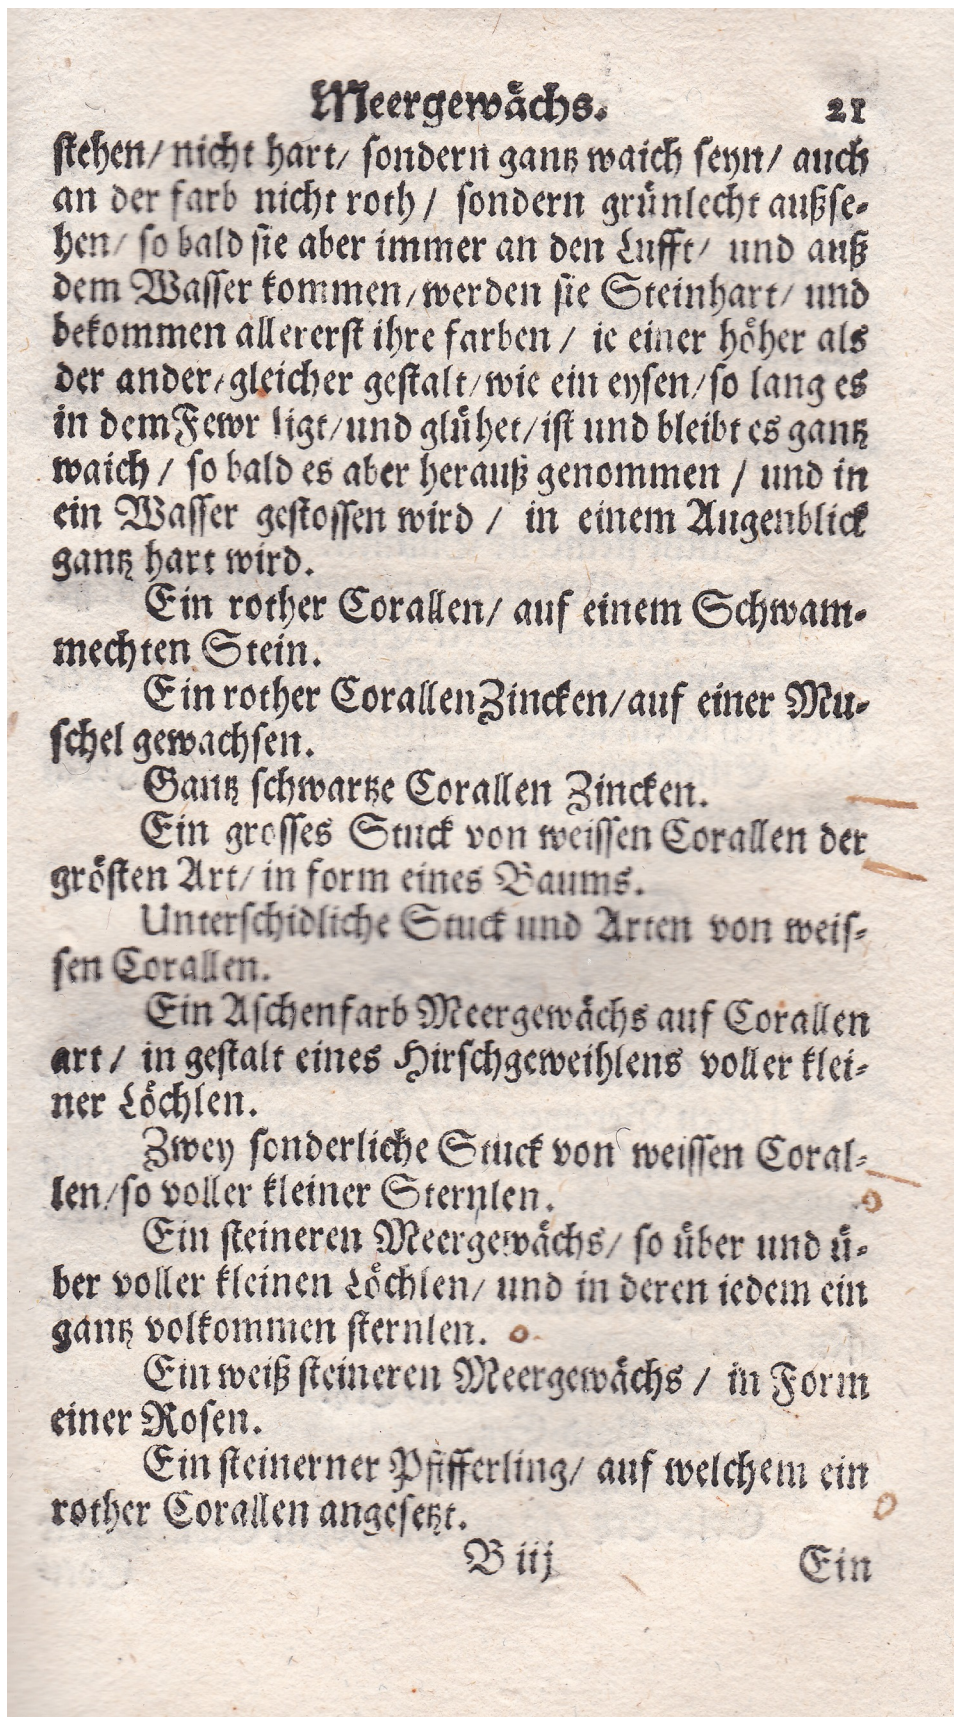 Meergewächs. 21
stehen/ nicht hart/ sondern gantz waich seyn/ auch
an der farb nicht roth/ sondern grünlecht außse-
hen/ so bald sie aber immer an den Lufft/ und auß
dem Wasser kommen/werden sie Steinhart/ und
bekommen allererst ihre farben/ ie einer höher als
der ander/gleicher gestalt/wie ein eysen/so lang es
in dem Fewr ligt/und glühet/ist und bleibt es gantz
waich/ so bald es aber herauß genommen/ und in
ein Wasser gestossen wird/ in einem Augenblick
gantz hart wird.
Ein rother Corallen/ auf einem Schwam-
mechten Stein.
Ein rother Corallen Zincken/auf einer Mu-
schel gewachsen.
Gantz schwartze Corallen Zincken.
Ein grosses Stuck von weissen Corallen der
grösten Art/ in form eines Baums.
Unterschidliche Stuck und Arten von weis-
sen Corallen.
Ein Aschenfarb Meergewächs auf Corallen
art/ in gestalt eines Hirschgeweihlens voller klei-
ner Löchlen.
Zwey sonderliche Stuck von weissen Coral-
len/so voller kleiner Sternlen.
Ein steineren Meergewächs/ so über und ü-
ber voller kleinen Löchlen/ und in deren iedem ein
gantz volkommen sternlen.
Ein weiß steineren Meergewächs/ in Form
einer Rosen.
Ein steinerner Pfifferling/ auf welchem ein
rother Corallen angesetzt.
B iij Ein